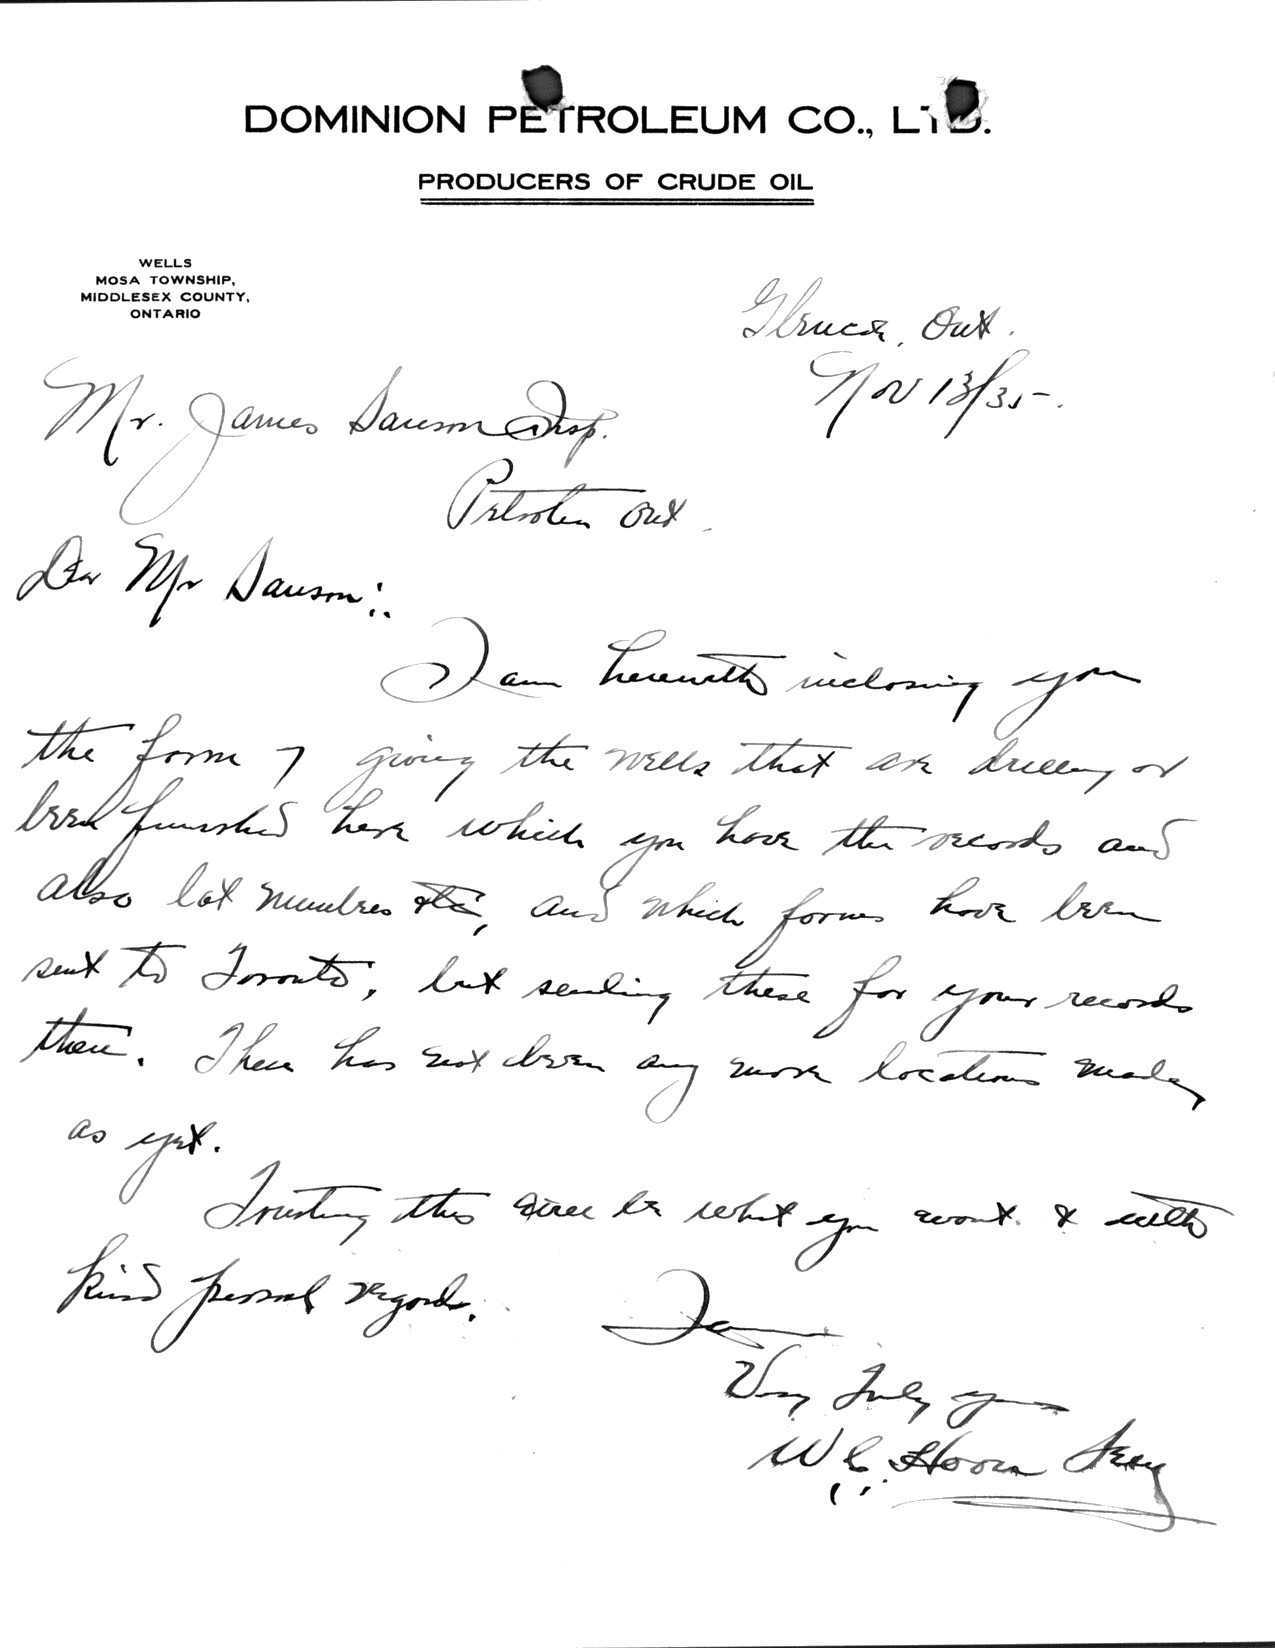 DOMINION PETROLEUM CO., LTD.
PRODUCERS OF CRUDE OIL
WELLS
MOSA TOWNSHIP,
MIDDLESEX COUNTY,
ONTARIO
Glencoe, Ont.
Nov 13/35.
Mr. James Sauson Insp.
Petrolea Ont.
Dear Mr Sauson:
I am herewith inclosing you
the form 7 giving the wells that are drilling or
been finished here which you have the records and
also lot numbres etc, and which formes have been
sent to Toronto, but sending these for your records
there. There has not been any more locations made,
as yet.
Trusting this will be what you want & with
kind personal regards.
I am
Very Truly yours
W.C. Hoover Secy